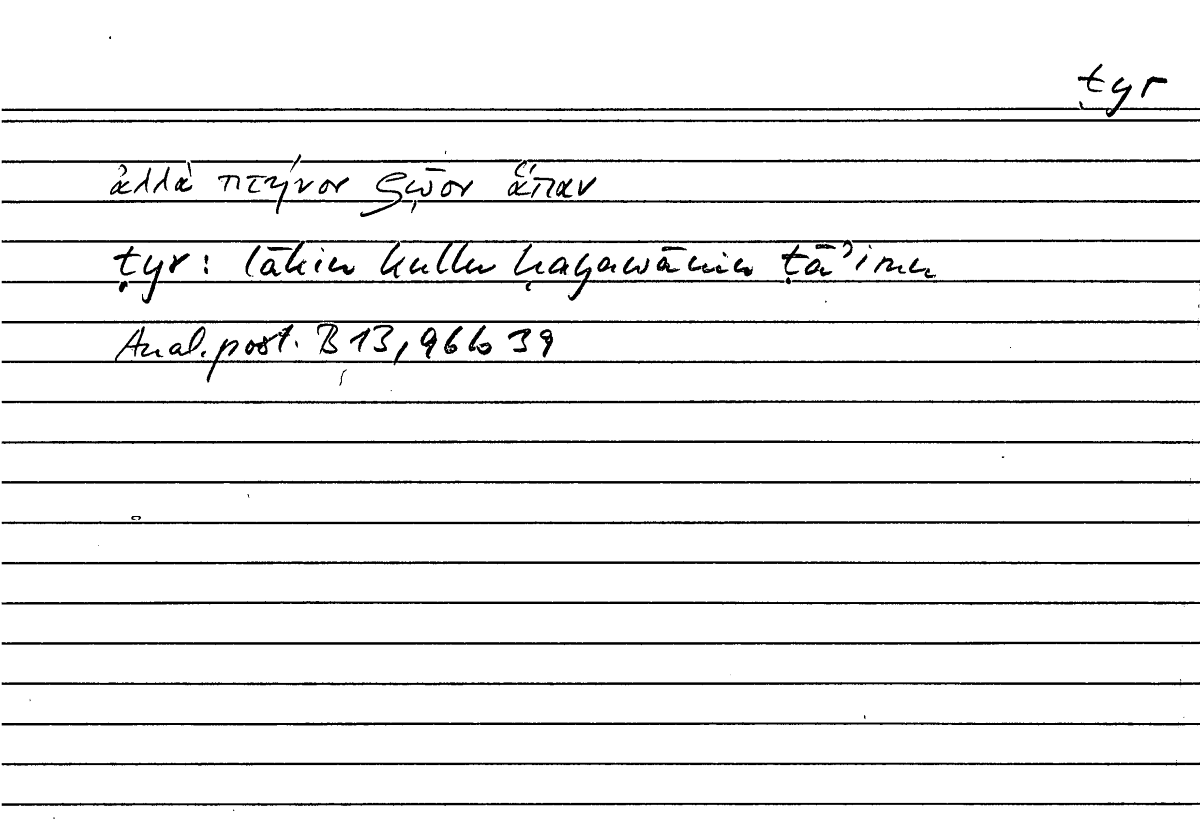 ṭyr
ἀλλὰ πτηνὸν ζῷον ἅπαν
ṭyr: lākin kullu ḥayawānin ṭāʾirun
Anal. post. B 13, 96 b 39